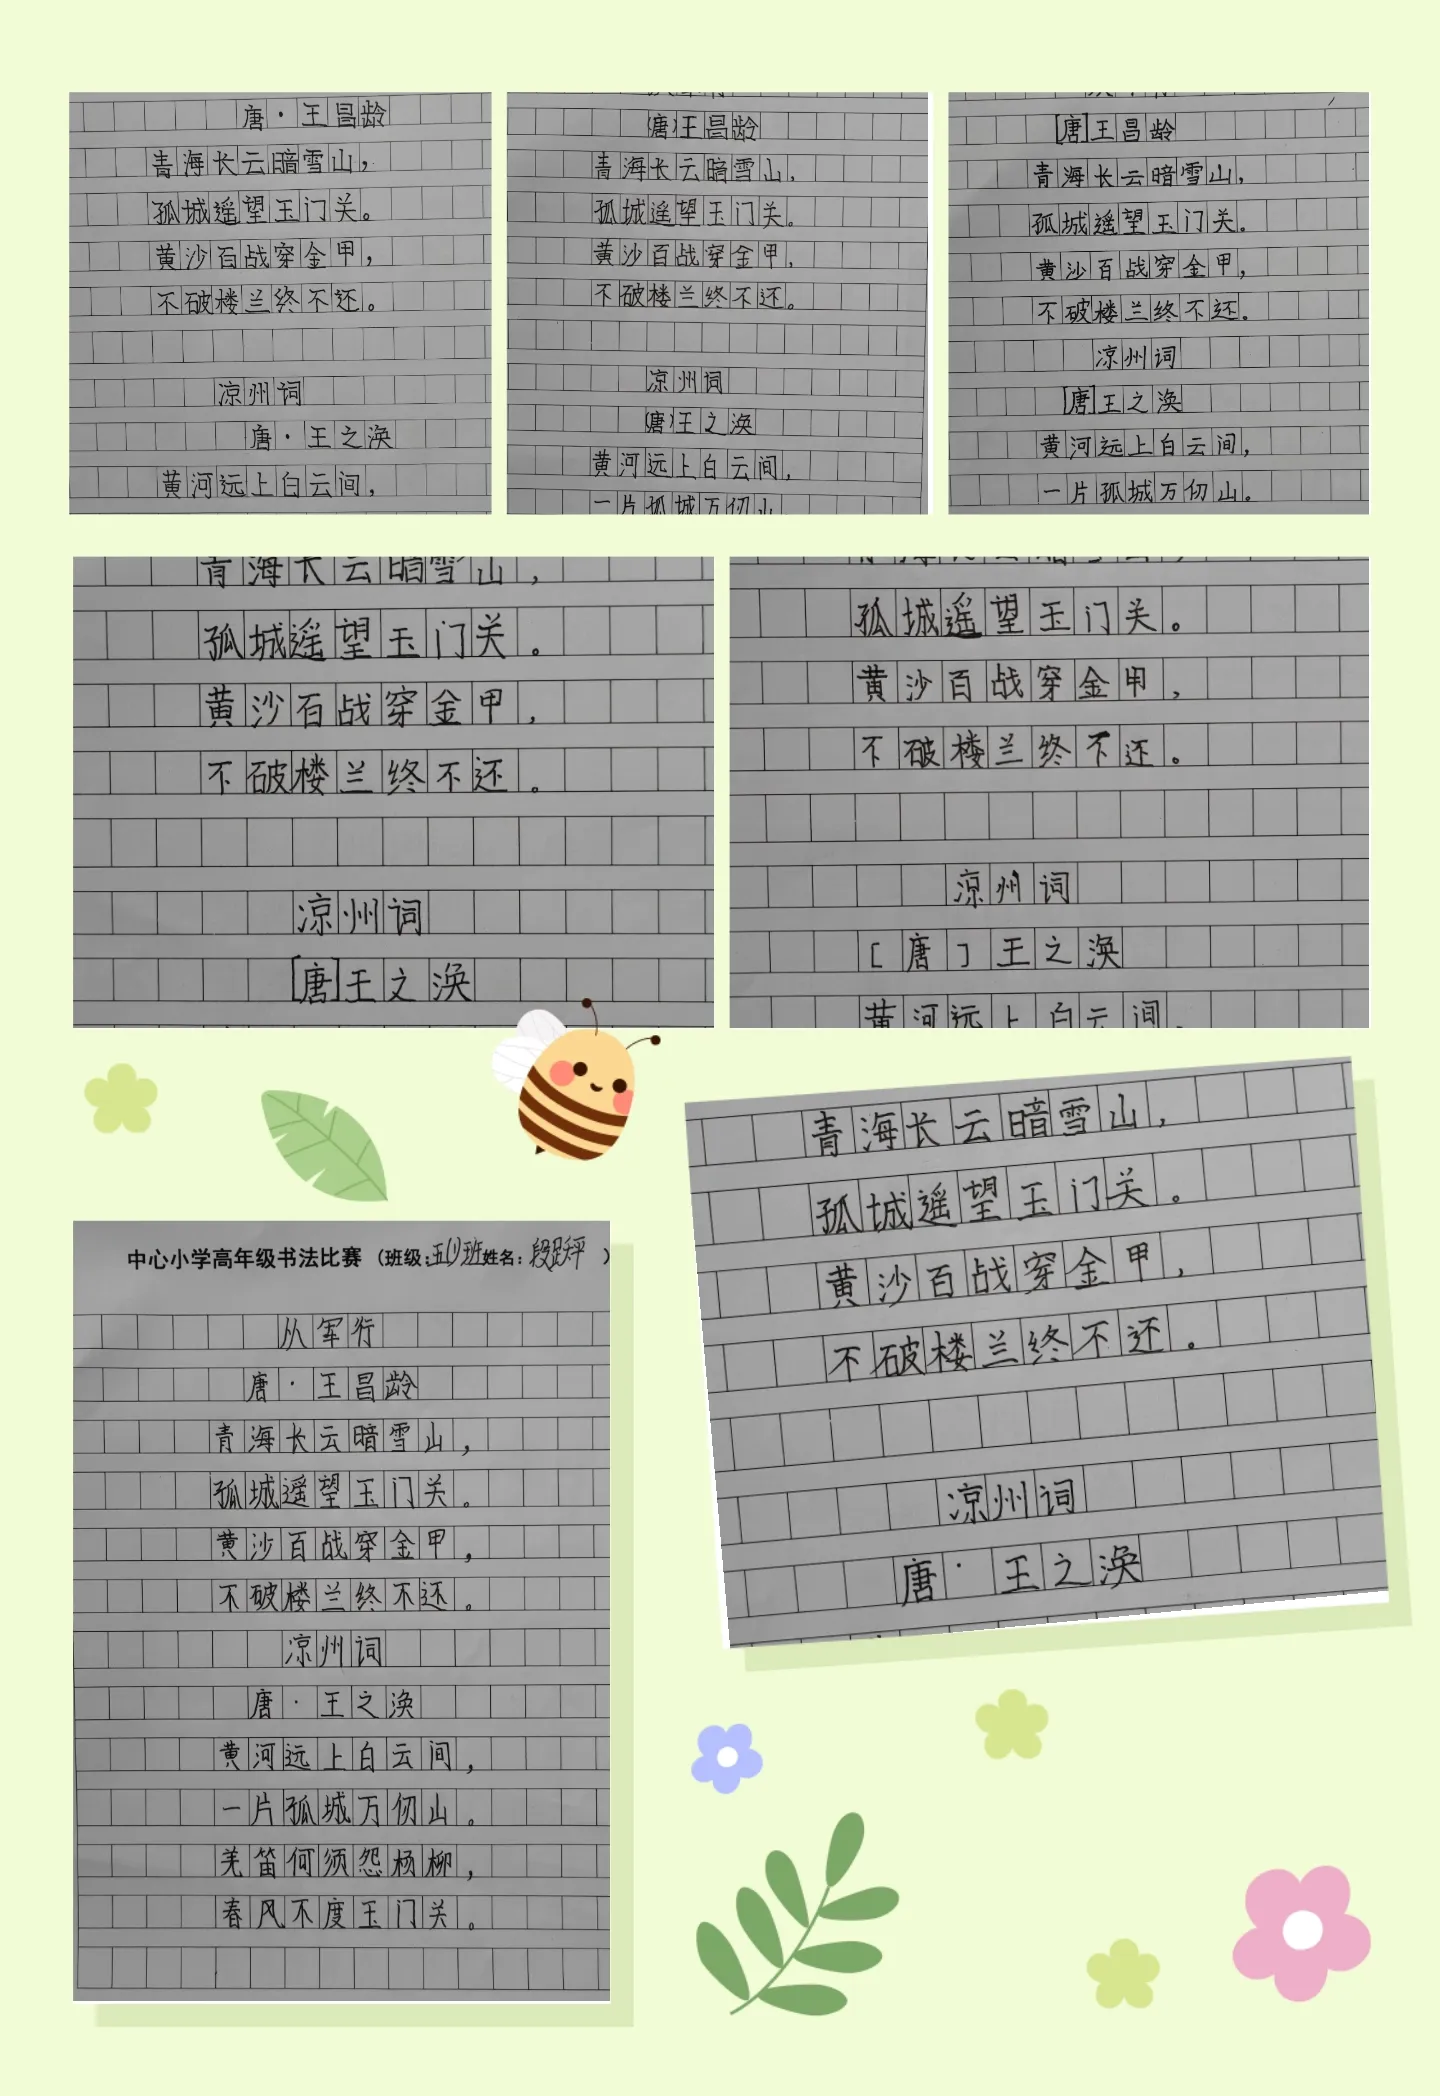 唐·王昌龄
青海长云暗雪山，
孤城遥望玉门关。
黄沙百战穿金甲，
不破楼兰终不还。
凉州词
唐·王之涣
黄河远上白云间，
(唐)王昌龄
青海长云暗雪山，
孤城遥望玉门关。
黄沙百战穿金甲，
不破楼兰终不还。
凉州词
(唐)王之涣
黄河远上白云间，
一片孤城万仞山
[唐]王昌龄
青海长云暗雪山，
孤城遥望玉门关。
黄沙百战穿金甲，
不破楼兰终不还。
凉州词
[唐]王之涣
黄河远上白云间，
一片孤城万仞山。
青海长云暗雪山，
孤城遥望玉门关。
黄沙百战穿金甲，
不破楼兰终不还。
凉州词
[唐]王之涣
孤城遥望玉门关。
黄沙百战穿金甲，
不破楼兰终不还。
凉州词
[唐]王之涣
黄河远上白云间，
青海长云暗雪山，
孤城遥望玉门关。
黄沙百战穿金甲，
不破楼兰终不还。
凉州词
唐·王之涣
中心小学高年级书法比赛（班级：班姓名：段）
从军行
唐·王昌龄
青海长云暗雪山，
孤城遥望玉门关。
黄沙百战穿金甲，
不破楼兰终不还。
凉州词
唐·王之涣
黄河远上白云间，
一片孤城万仞山。
羌笛何须怨杨柳，
春风不度玉门关。